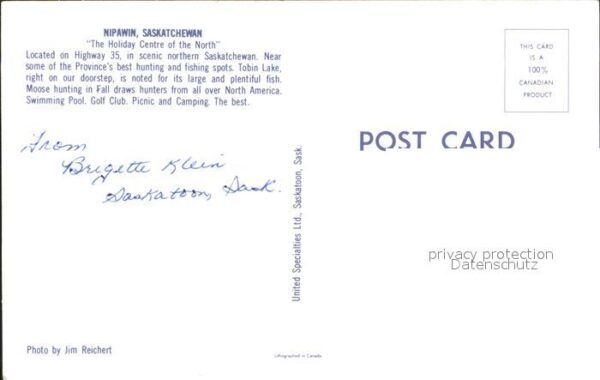 NIPAWIN, SASKATCHEWAN
"The Holiday Centre of the North"
Located on Highway 35, in scenic northern Saskatchewan. Near
some of the Province's best hunting and fishing spots. Tobin Lake,
right on our doorstep, is noted for its large and plentiful fish.
Moose hunting in Fall draws hunters from all over North America.
Swimming Pool. Golf Club. Picnic and Camping. The best.
THIS CARD
IS A
100%
CANADIAN
PRODUCT
POST CARD
From
Brigette Klein
Saskatoon, Sask.
United Specialties Ltd., Saskatoon, Sask.
privacy protection
Datenschutz
Photo by Jim Reichert
Lithographed in Canada